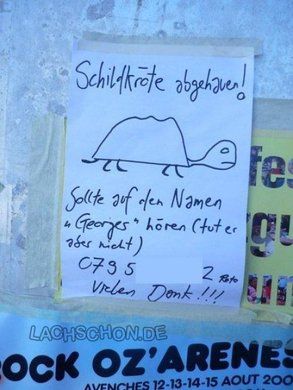 Schildkröte abgehauen!
Sollte auf den Namen
"Georges" hören (tut er
aber nicht)
0795
Vielen Dank!!!
LACHSCHON.DE
OCK OZ'ARENES
AVENCHES 12-13-14-15 AOUT 200